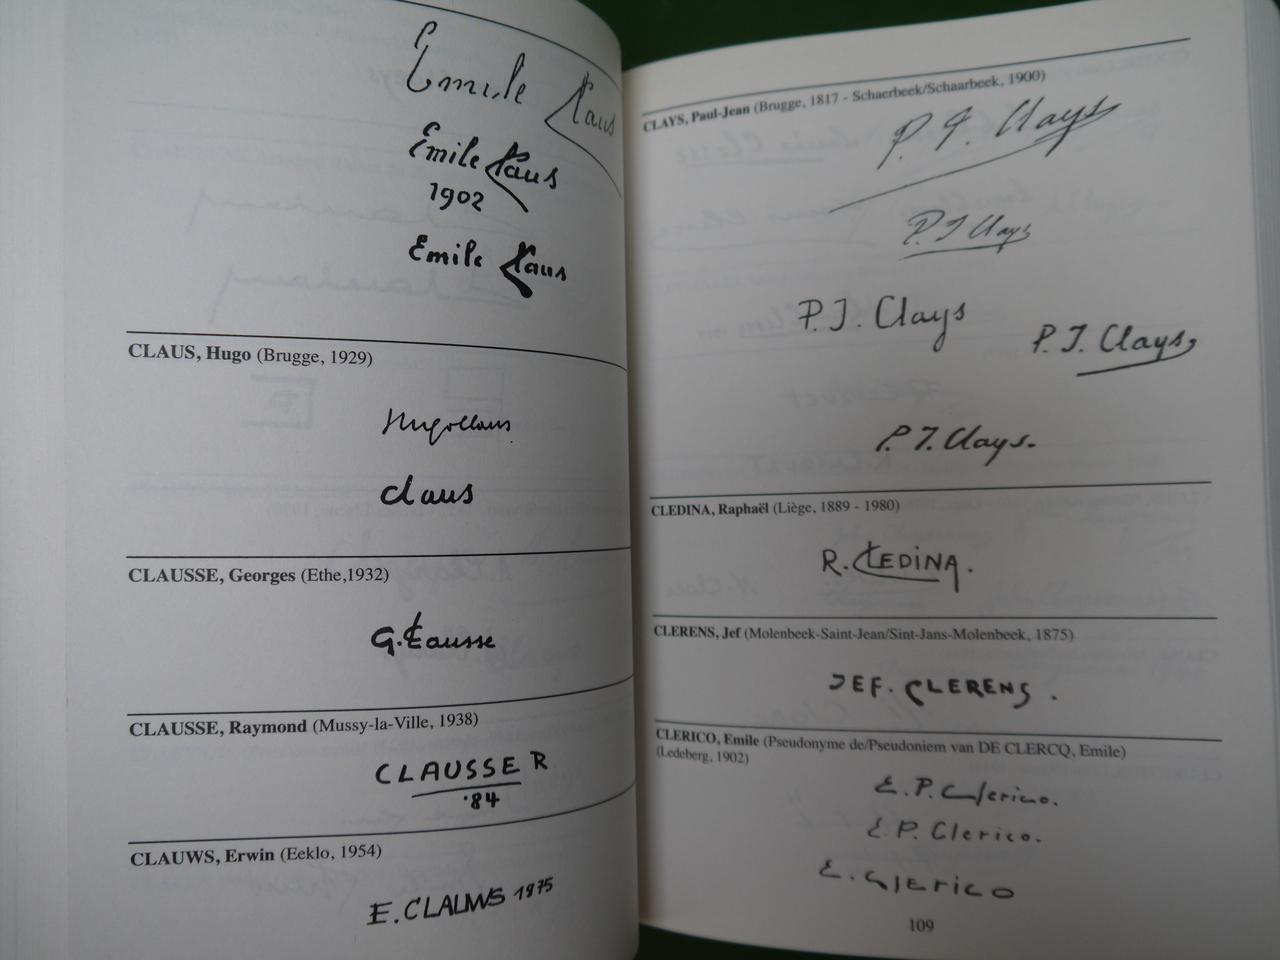 Emile Claus
Emile Claus
1902
Emile Claus
CLAUS, Hugo (Brugge, 1929)
Hugo Claus
Claus
CLAUSSE, Georges (Ethe,1932)
G. Clausse
CLAUSSE, Raymond (Mussy-la-Ville, 1938)
CLAUSSE R
'84
CLAUWS, Erwin (Eeklo, 1954)
E. CLAUWS 1975
CLAYS, Paul-Jean (Brugge, 1817 - Schaerbeek/Schaarbeek, 1900)
P. J. Clays
P J Clays
P. J. Clays
P. J. Clays,
P. J. Clays.
CLEDINA, Raphaël (Liège, 1889 - 1980)
R. CLEDINA.
CLERENS, Jef (Molenbeek-Saint-Jean/Sint-Jans-Molenbeek, 1875)
JEF. CLERENS .
CLERICO, Emile (Pseudonyme de/Pseudoniem van DE CLERCQ, Emile)
(Ledeberg, 1902)
E. P. Clerico.
E. P. Clerico.
E. CLERICO
109